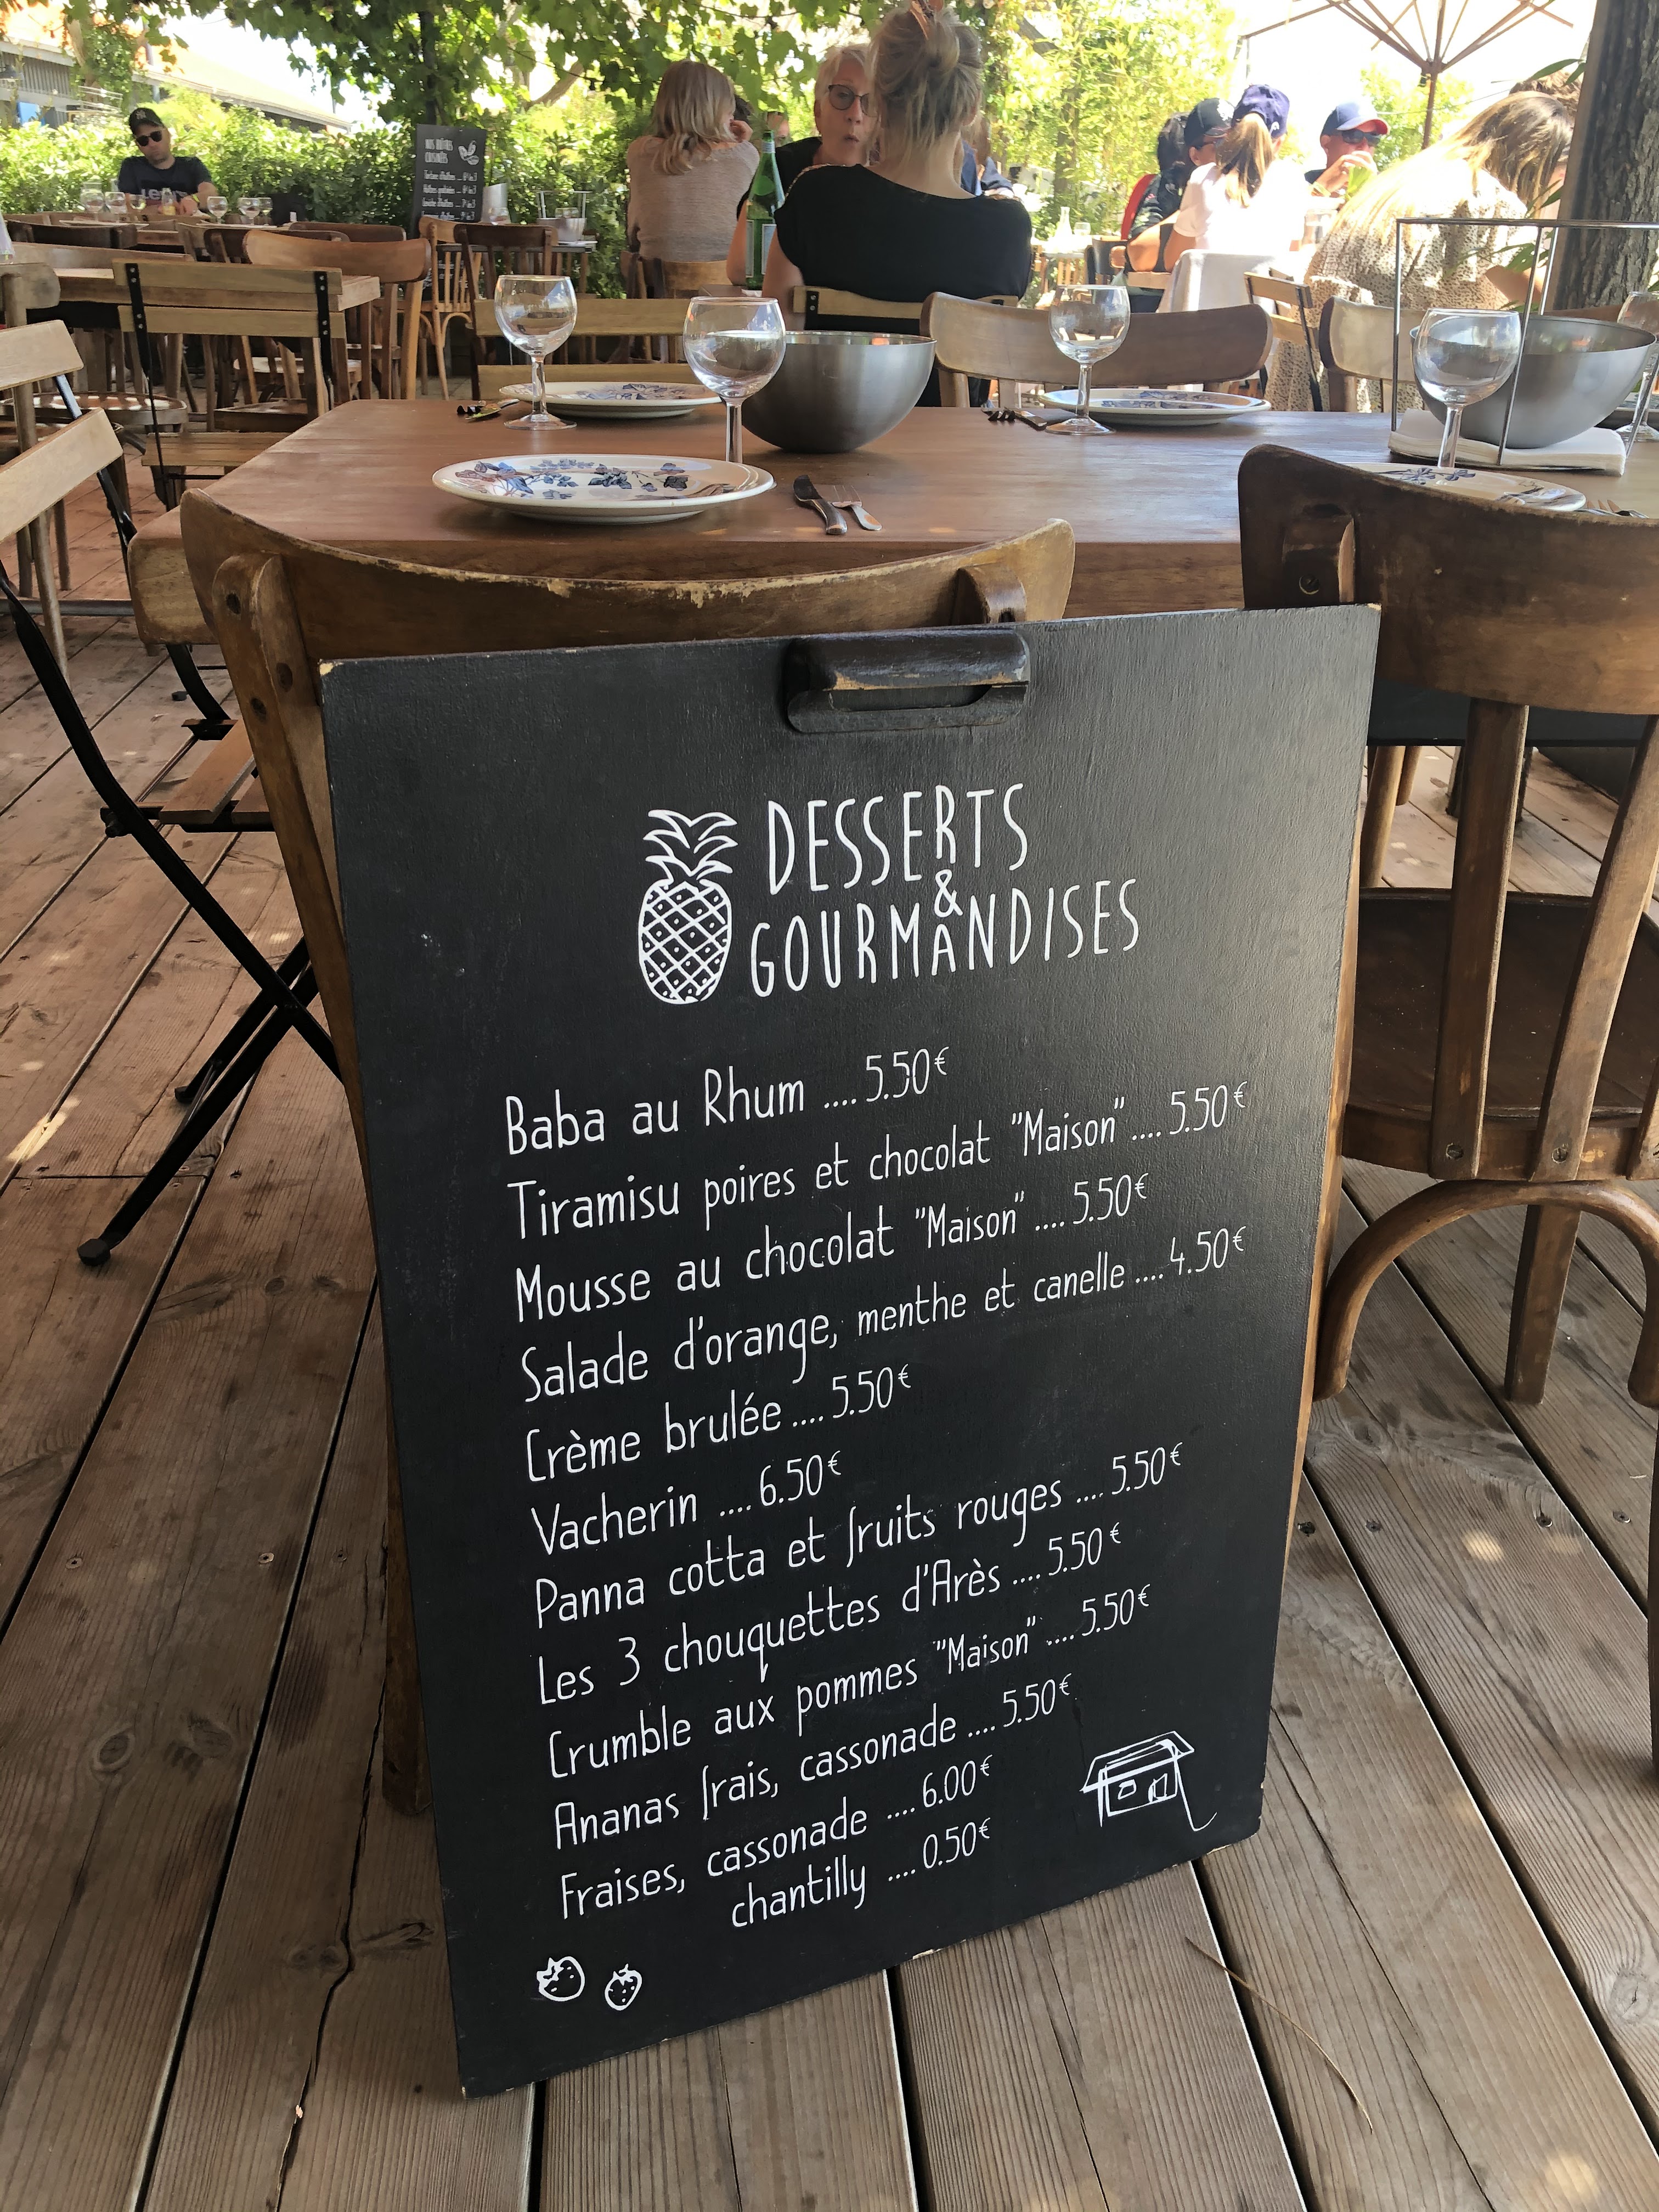 NOS HUÎTRES
CUISINÉES
DESSERTS
&
GOURMANDISES
Baba au Rhum .... 5.50€
Tiramisu poires et chocolat "Maison" .... 5.50€
Mousse au chocolat "Maison" .... 5.50€
Salade d'orange, menthe et canelle .... 4.50€
Crème brulée .... 5.50€
Vacherin .... 6.50€
Panna cotta et fruits rouges .... 5.50€
Les 3 chouquettes d'Arès .... 5.50€
Crumble aux pommes "Maison" .... 5.50€
Ananas frais, cassonade .... 5.50€
Fraises, cassonade .... 6.00€
chantilly .... 0.50€